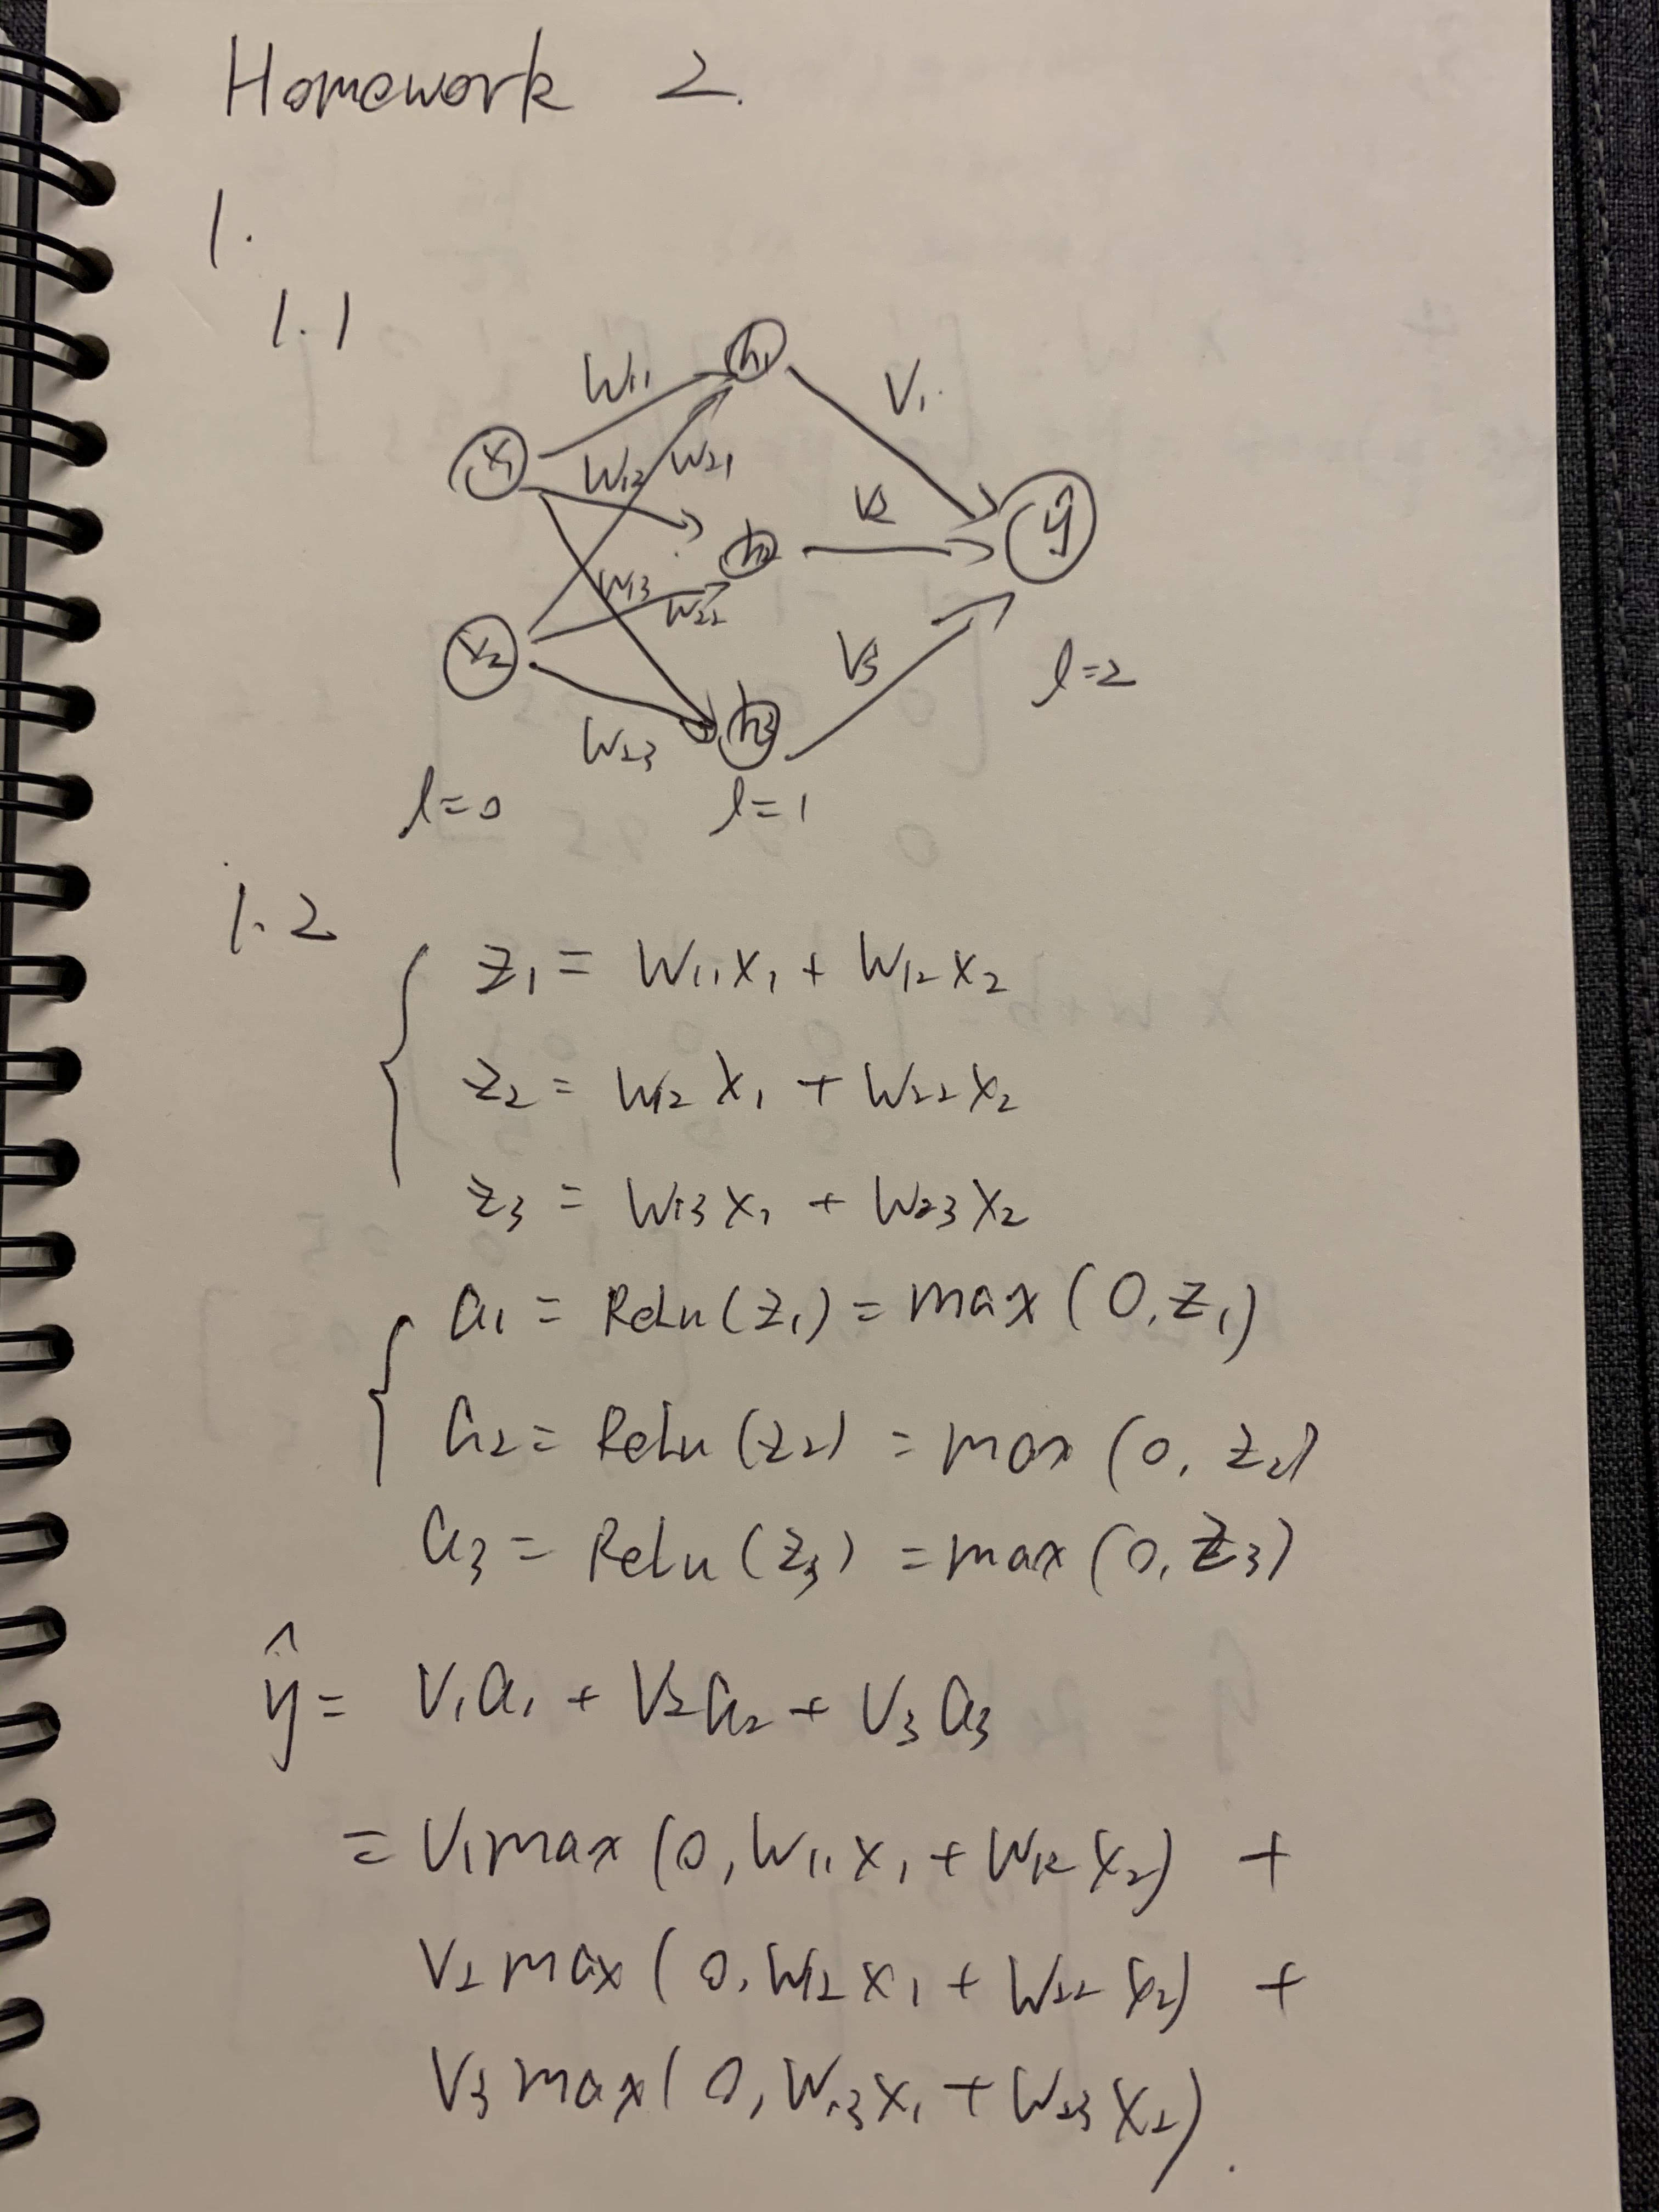 Homework 2.
1.
1.1
W11 h1 V1
x1 W12 W21
V2 ŷ
h2
W13 W22
x2 V3 l=2
W23 h3
l=0 l=1
1.2
z1 = W11x1 + W12x2
z2 = W12x1 + W22x2
z3 = W13x1 + W23x2
a1 = Relu(z1) = max(0,z1)
a2 = Relu(z2) = max(0, z2)
a3 = Relu(z3) = max(0, z3)
ŷ = V1a1 + V2a2 + V3a3
= V1max(0, W11x1 + W12x2) +
V2max(0, W12x1 + W22x2) +
V3max(0, W13x1 + W23x2).